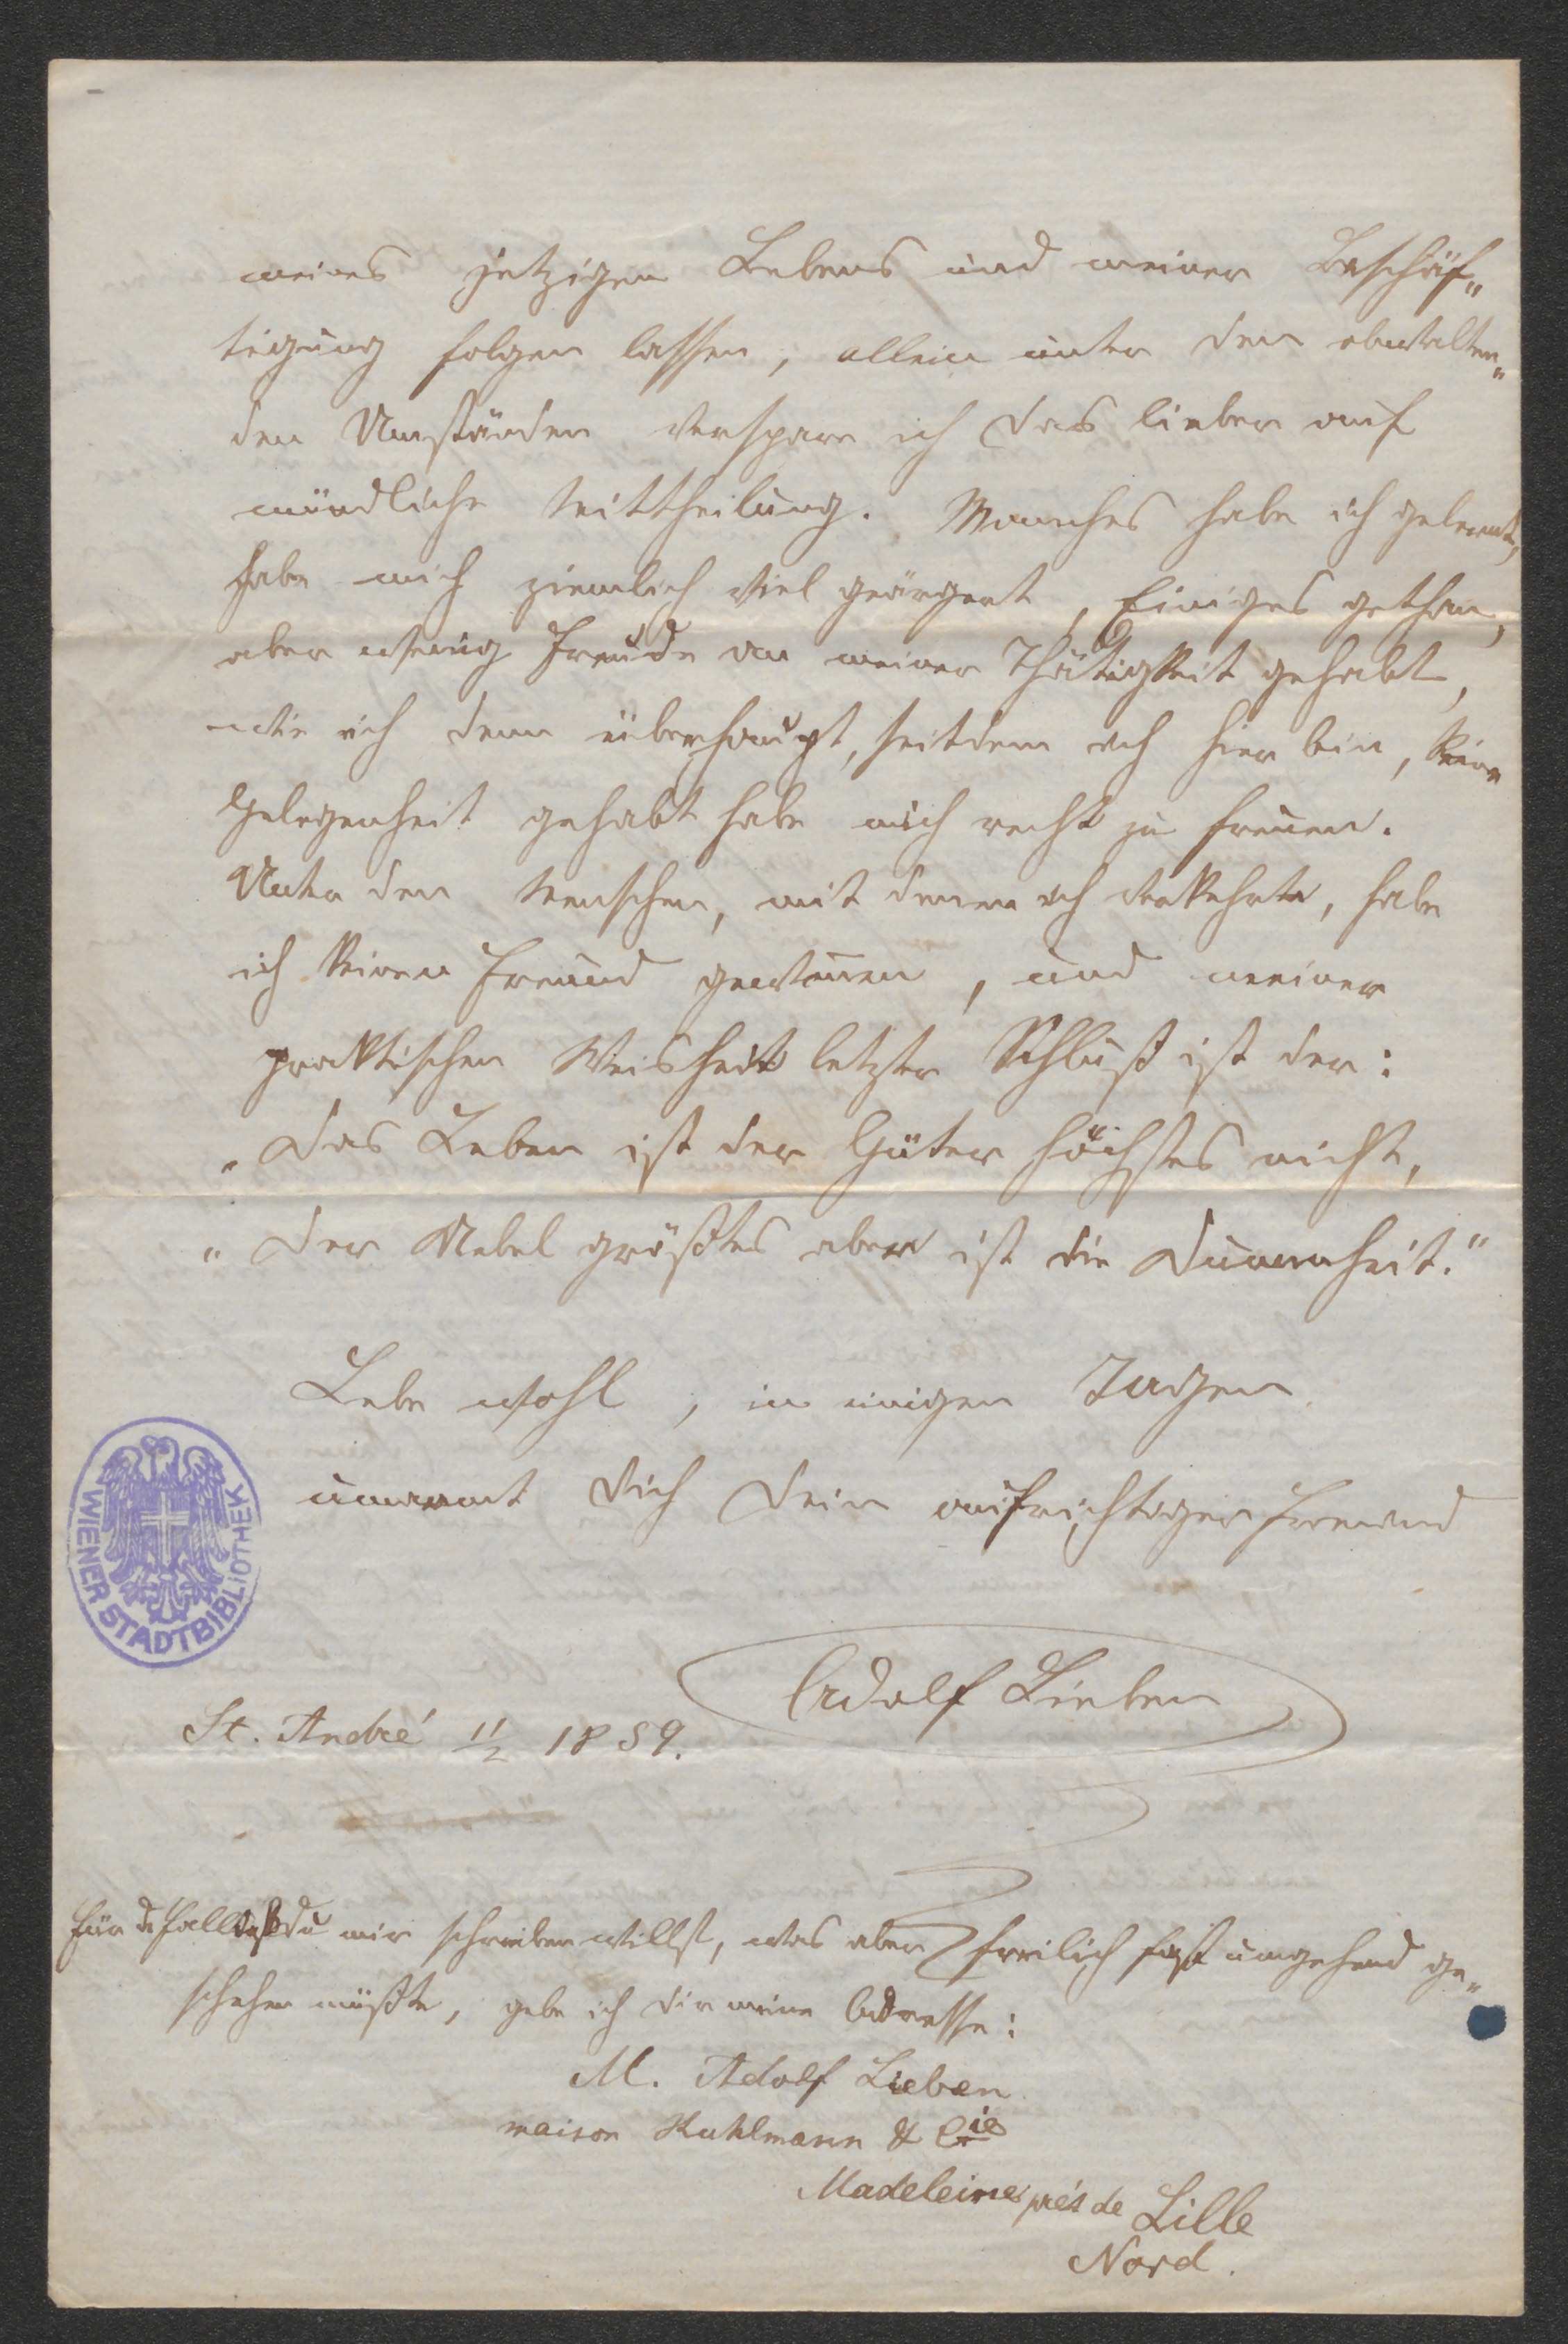 meines jetzigen Lebens und meiner Beschäf„
tigung folgen lassen, allein unter den obwalten„
den Umständen verspare ich das lieber auf
mündliche Mittheilung. Manches habe ich gelernt,
habe mich ziemlich viel geärgert, Einiges gethan,
aber wenig Freude an meiner Thätigkeit gehabt,
wie ich denn überhaupt, seitdem ich hier bin, keine
Gelegenheit gehabt habe mich recht zu freuen.
Unter den Menschen, mit denen ich verkehrte, habe
ich keinen Freund gewonnen, und meiner
praktischen Weisheit letzter Schluß ist der:
„Das Leben ist der Güter höchstes nicht,
„Der Uebel größtes aber ist die Dummheit."
Lebe wohl, in einigen Tagen
umarmt Dich Dein aufrichtiger Freund
Adolf Lieben
St. André 11/2 1859.
WIENER STADTBIBLIOTHEK
Für d Fall daß du mir schreiben willst, was aber freilich fast umgehend ge„
schehen müßte, gebe ich dir meine Adresse:
M. Adolf Lieben
maison Kuhlmann & Cie
Madeleine près de Lille
Nord.